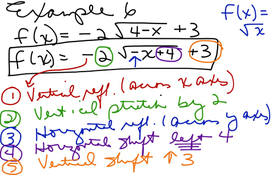 Example 6
f(x) = √x
f(x) = -2√4-x + 3
f(x) = -2√-x+4 +3
① Vertical refl. (across x axis)
② Vertical stretch by 2
③ Horizontal refl. (across y axis)
④ Horizontal shift left 4
⑤ Vertical shift ↑ 3